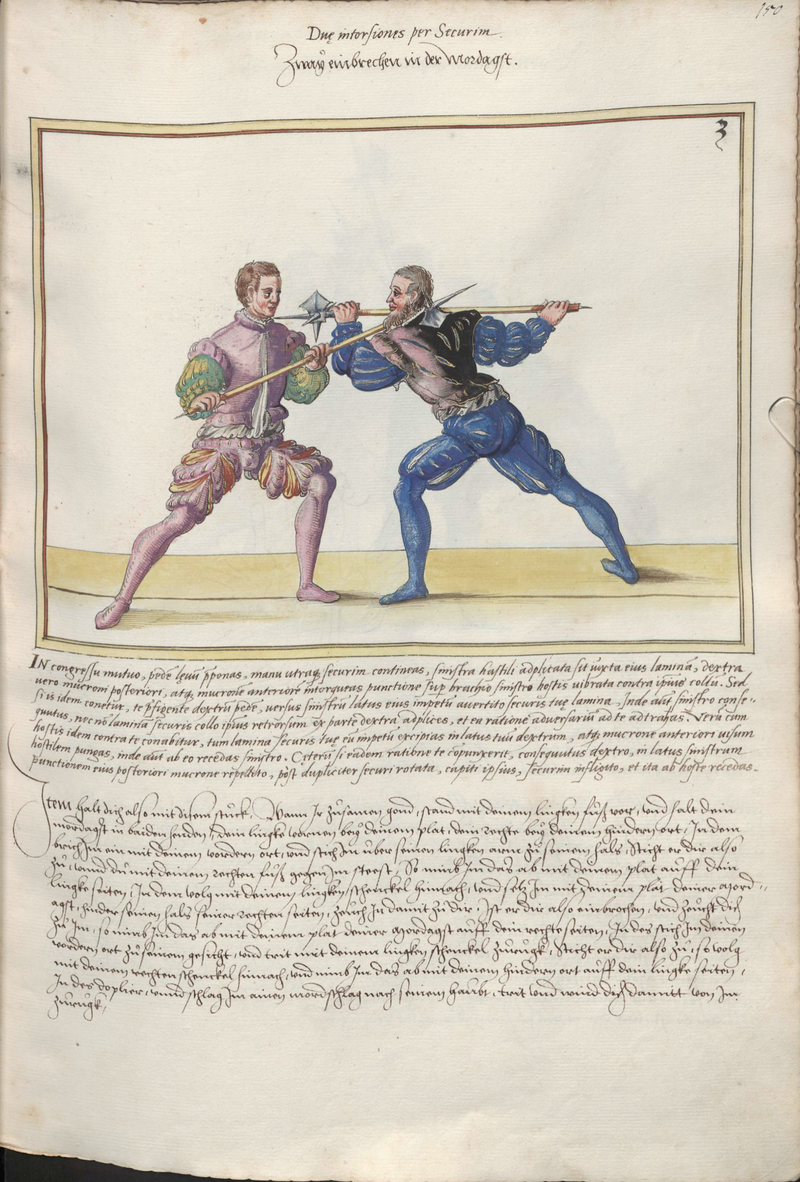 150
Duę intorsiones per Securim.
Zway einbrechen in der Mordagst.
3
IN congressu mutuo, pede levu pponas, manu utraq, securim contineas, sinistra hastili adplicata sit iuxta eius laminā, dextra
vero mucroni posteriori, atq, mucrone anteriore intorqueas punctione sup brachio sinistro hostis vibrata contra ipsius collū. Sed
si is idem conetur, te pfigente dextrū pede, versus sinistrū latus eius impetū avertito securis tuę lamina. Inde aut sinistro conse-
quutus, nec nō laminā securis collo ipsius retrorsum ex parte dextra adplices, et ea ratione adversariū ad te adtrahas. Verū cum
hostis idem contra te conabitur, tum lamina securis tuę eū impetū excipias in latus tuū dextrum, atq, mucrone anteriori visum
hostilem pungas, inde aut ab eo recedas sinistro. Ceterū si eadem ratione te copunxerit, consequutus dextro, in latus sinistrum
punctionem eius posteriori mucrone repellito, post dupliciter securi rotata, capiti ipsius, securim infligito, et ita ab hoste recedas.
Item halt dich also mit disem stuckh, Wann Ir zusamen gond, stand mit deinem lingken fuß vor, und halt dein
mordagst in baiden henden, dein lingke vornen bey deinem plat, dein rechte bey deinem hindern ort, In dem
brich Im ein mit deinem vordern ort, und stich Im uber seinen lingken arm zu seinem hals, Sticht er dir also
zu, unnd du mit deinem rechten fuß gegen Im steest, So nimb Im das ab mit deinem plat auff dein
lingke seiten, In dem volg mit deinem lingken schenckel hinnach, und setz Im mit deinem plat deiner mord-
agst, hinder seinen hals seiner rechten seiten, zeuch In damit zu dir, Ist er dir also einbrochen, und zeucht dich
zu Im, so nimb Im das ab mit deinem plat deiner mordagst auff dein rechte seiten, In des stich Im deinen
vordern ort zu seinem gesicht, und trit mit deinem lingken schenckel zurugk, Sticht er dir also zu, so volg
mit deinem rechten schenckel hinnach, und nimb Im das ab mit deinem hindern ort auff dein lingke seiten,
In des doplier, unnd schlag Im ainen mordschlag nach seinem haubt, trit und wind dich damit von Im
zurugk,